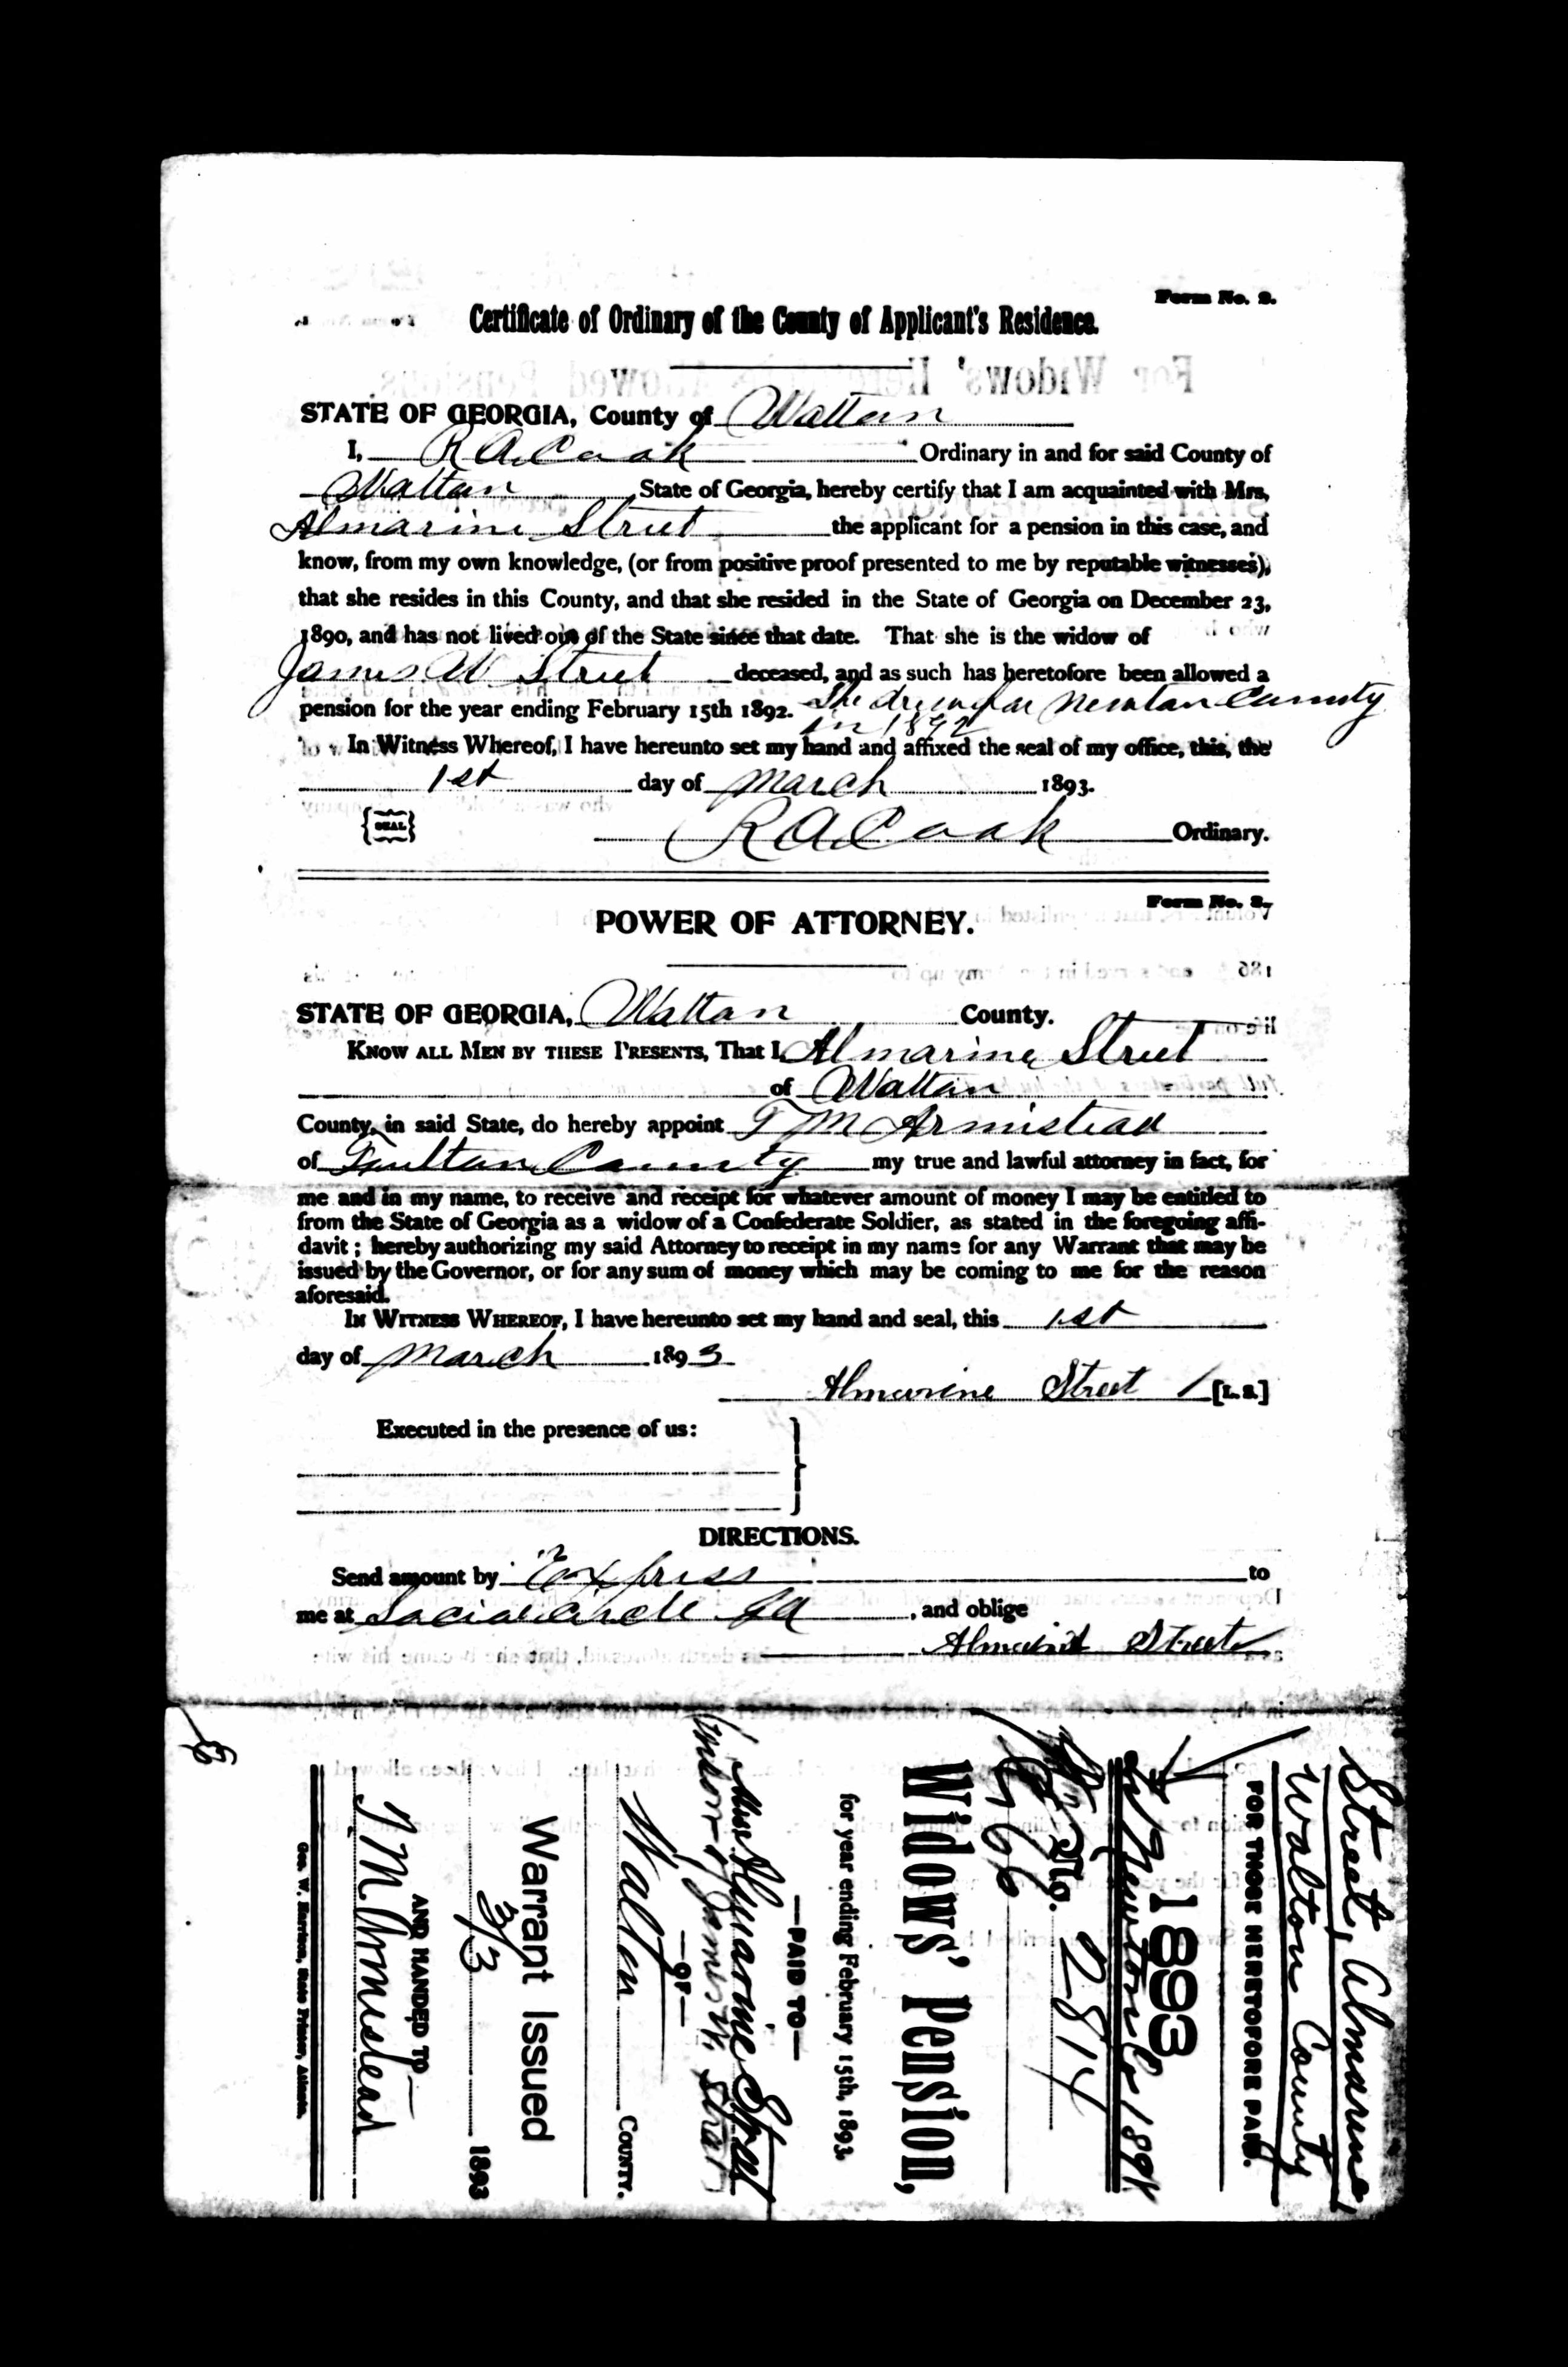 Form No. 2.
Certificate of Ordinary of the County of Applicant's Residence.
STATE OF GEORGIA, County of Walton
I, R A Cook Ordinary in and for said County of
Walton State of Georgia, hereby certify that I am acquainted with Mrs,
Almarine Street the applicant for a pension in this case, and
know, from my own knowledge, (or from positive proof presented to me by reputable witnesses),
that she resides in this County, and that she resided in the State of Georgia on December 23,
1890, and has not lived out of the State since that date. That she is the widow of
James W Street deceased, and as such has heretofore been allowed a
pension for the year ending February 15th 1892. She drew for Newton County
in 1892
In Witness Whereof, I have hereunto set my hand and affixed the seal of my office, this, the
1st day of March 1893.
{SEAL} R A Cook Ordinary.
POWER OF ATTORNEY.
STATE OF GEORGIA, Walton County.
KNOW ALL MEN BY THESE PRESENTS, That I, Almarine Street
of Walton
County, in said State, do hereby appoint T M Armistead
of Fulton County my true and lawful attorney in fact, for
me and in my name, to receive and receipt for whatever amount of money I may be entitled to
from the State of Georgia as a widow of a Confederate Soldier, as stated in the foregoing affi-
davit; hereby authorizing my said Attorney to receipt in my name for any Warrant that may be
issued by the Governor, or for any sum of money which may be coming to me for the reason
aforesaid.
IN WITNESS WHEREOF, I have hereunto set my hand and seal, this 1st
day of March 1893
Almarine Street [L. S.]
Executed in the presence of us:
DIRECTIONS.
Send amount by Express to
me at Social Circle Ga, and oblige
Almarine Street
Street, Almarine,
Walton County
FOR THOSE HERETOFORE PAID.
1893
Newton 1891
No. 2814
Widows' Pension,
for year ending February 15th, 1893.
—PAID TO—
Mrs Almarine Street
James W. Street
—OF—
Walton COUNTY.
Warrant Issued
3/3 1893
AND HANDED TO
T M Armistead
Geo. W. Harrison, State Printer, Atlanta.